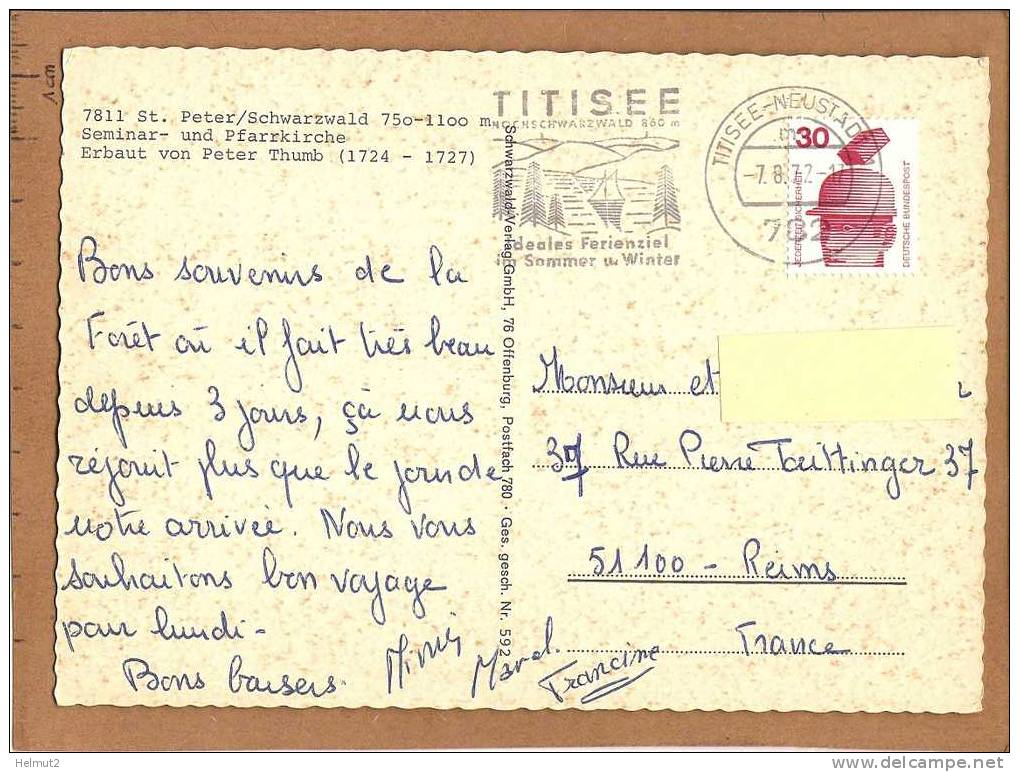 1cm
7811 St. Peter/Schwarzwald 750-1100 m
Seminar- und Pfarrkirche
Erbaut von Peter Thumb (1724 - 1727)
TITISEE
HOCHSCHWARZWALD 860 m
Ideales Ferienziel
im Sommer u. Winter
TITISEE-NEUSTADT
-7.8.72-17
782
30
JEDERZEIT SICHERHEIT
DEUTSCHE BUNDESPOST
Schwarzwald-Verlag GmbH, 76 Offenburg, Postfach 780 · Ges. gesch. Nr. 592
Bons souvenirs de la
Forêt où il fait très beau
depuis 3 jours, çà nous
réjouit plus que le jour de
notre arrivée. Nous vous
souhaitons bon voyage
pour lundi -
Bons baisers.
Mimi
Marcel.
Francine
Monsieur et
37 Rue Pierre Taittinger 37
51100 - Reims
France
Helmut2
www.delcampe.net